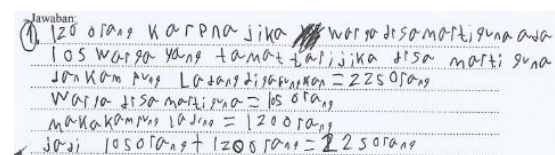 Jawaban:
1. 120 orang karena jika warga desa martiguna ada
105 warga yang tamat tari jika desa marti guna
dan kam pung Ladang digabungkan = 225 orang
Warga desa martiguna = 105 orang
maka kampung ladang = 120 orang
jadi 105 orang + 120 orang = 225 orang